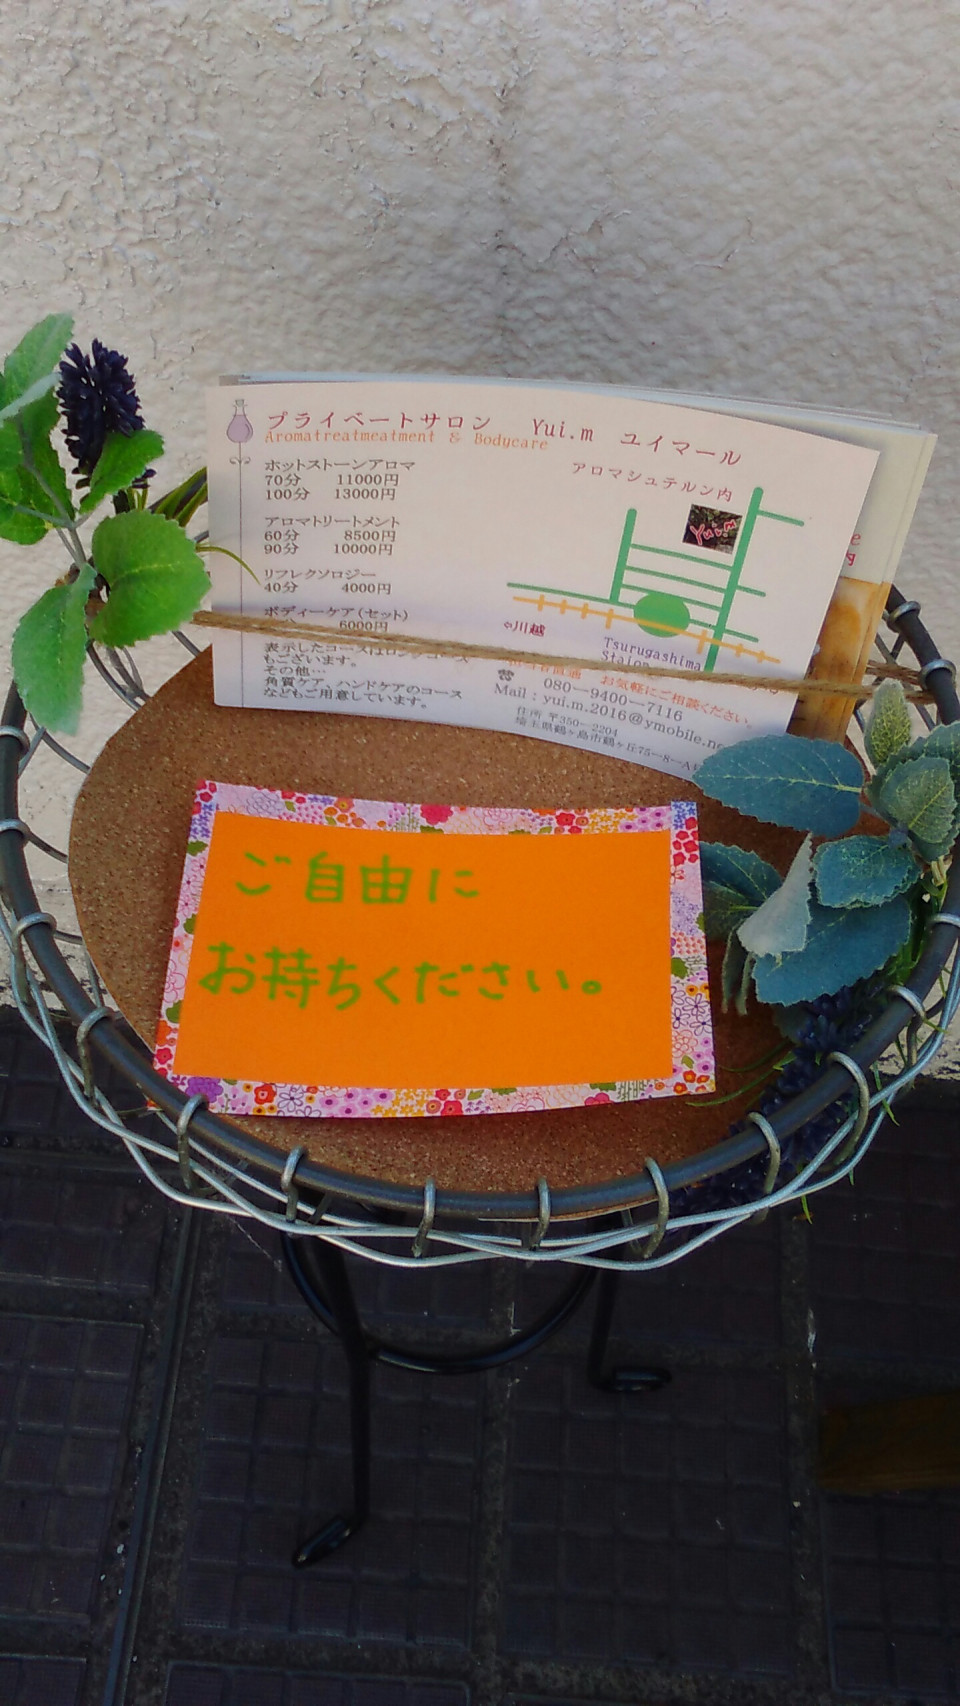 プライベートサロン Yui.m ユイマール
Aromatreatmeatment & Bodycare
アロマシュテルン内
ホットストーンアロマ
70分 11000円
100分 13000円
アロマトリートメント
60分 8500円
90分 10000円
リフレクソロジー
40分 4000円
ボディーケア(セット)
6000円
表示したコースはロングコース
もございます。
その他…
角質ケア、ハンドケアのコース
などもご用意しています。
Yui.m
⇦川越
Tsurugashima
Staion
お気軽にご相談ください。
☎ 080-9400-7116
Mail:yui.m.2016@ymobile.ne
住所 〒350-2204
埼玉県鶴ヶ島市鶴ヶ丘75-8-A
ご自由に
お持ちください。